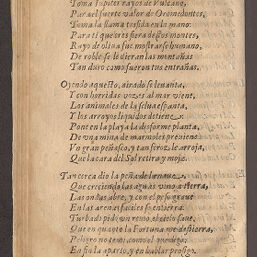 Toma Iupiter rayos de Vulcano,
Para el fuerte valor de Oromedontes,
Toma la llama teñida en la mano:
Para ti que eres fiera destos montes,
Rayo de oliua fue mostrarse humano,
De roble se le dieran mis entrañas
Tan duro como fueron tus entrañas.
Oyendo aquesto, airado se leuanta,
Y con horridas vozes al mar viene,
Los animales de la selua espanta,
Y los arroyos liquidos detiene:
Pone en la playa la disforme planta,
De vna mina de marmoles preuiene
Vn gran peñasco, y tan feroz le arroja,
Que la cara del Sol retira y moja.
Tan cerca dio la peña de la naue,
Que creciendo las aguas vino a tierra,
Las ondas abre, y con el peso graue
En las arenas faciles se entierra:
Turbado pido vn remo,
Que en quanto la Fortuna
Peligro no temi, como
En fin la aparto, y en hablar prosigo,